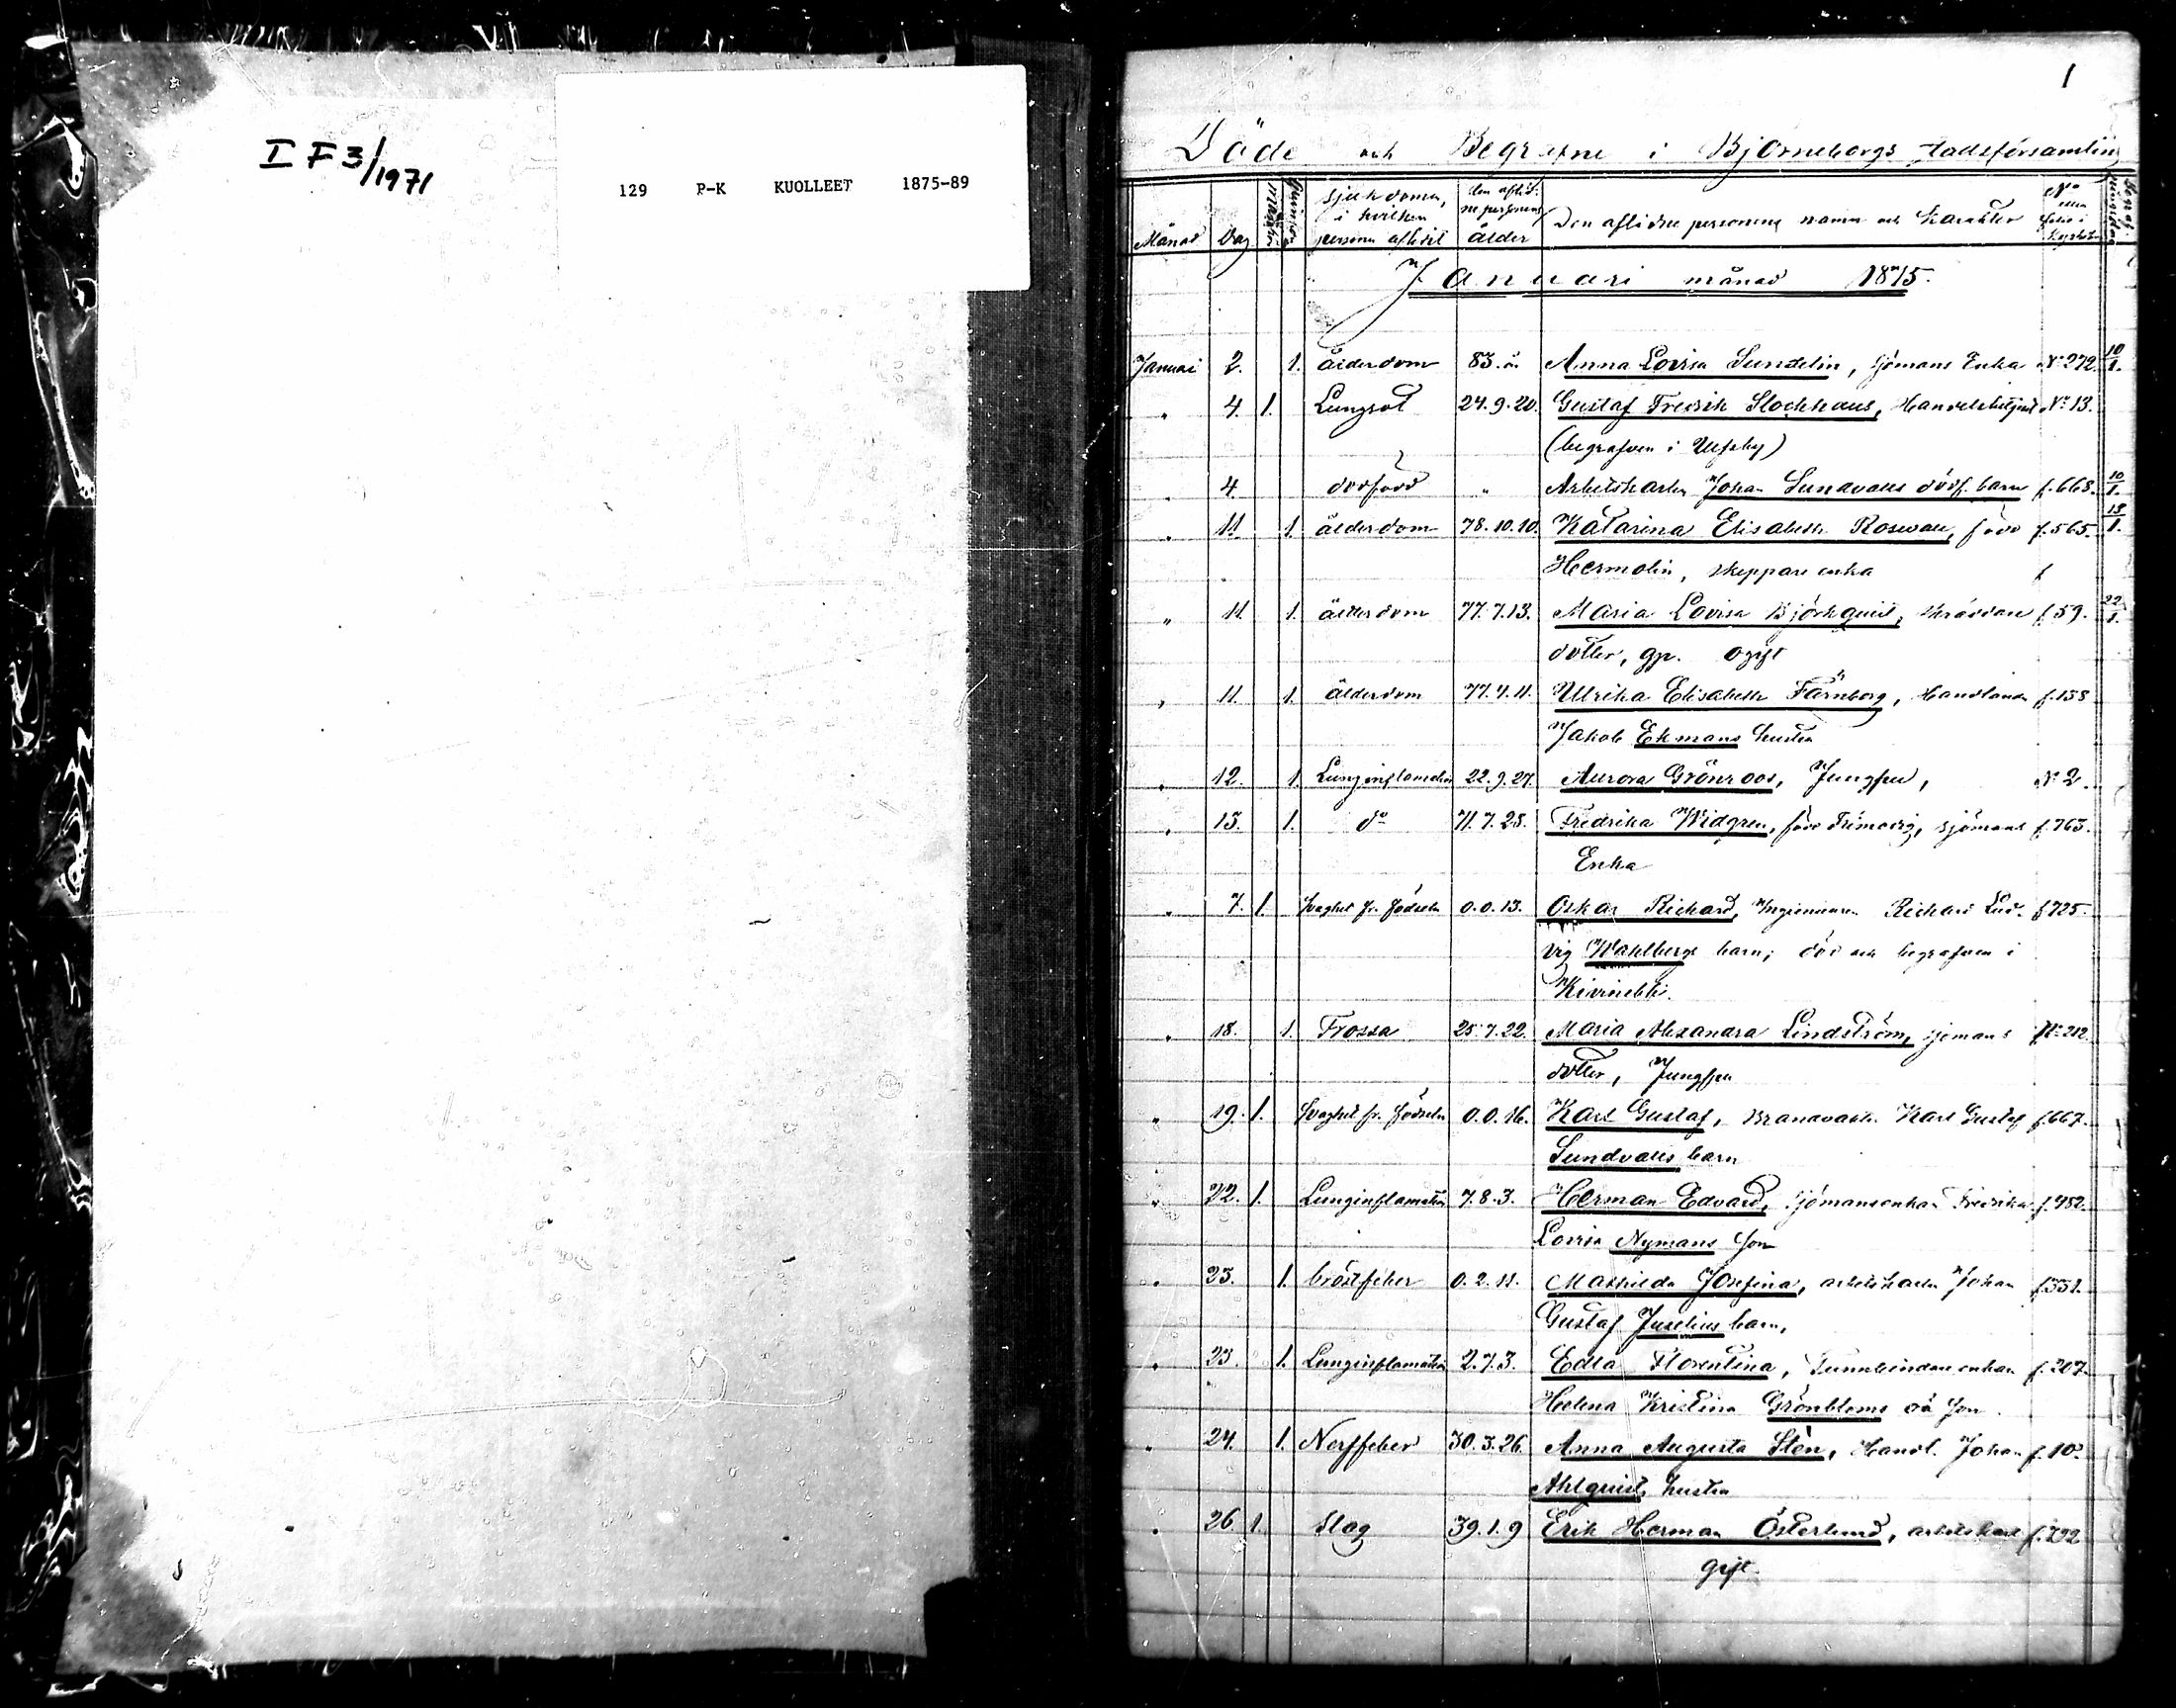 I F 3/1971
129 P-K KUOLLEET 1875-89
1
Döde och Begrafne i Björneborgs stadsförsamling
Månad Dag mankön qvinkön sjukdomen, i hvilken personen aflidit den aflidne personens ålder Den aflidne personens namn och karakter No eller folio i Kyrkob.
Januari månad 1875.
Januari 2. 1. ålderdom 83. år Anna Lovisa Sundelin, sjömans Enka No 272. 10/1.
" 4. 1. Lungsot 24.9.20. Gustaf Fredrik Stockhaus, Handelsbetjent No 13.
(begrafven i Ulfsby)
" 4. dödfödd " Arbetskarlen Johan Sundvalls dödf. barn f. 668. 10/1.
" 11. 1. ålderdom 78.10.10. Katarina Elisabeth Rosvall, född f. 565. 18/1.
Hermolin, skeppare enka
" 11. 1. ålderdom 77.7.13. Maria Lovisa Björkquist, skräddare f. 59. 22/1.
dotter, gp. ogift
" 11. 1. ålderdom 77.4.11. Ulrika Elisabeth Färnberg, Handlanden f. 158
Jakob Ekmans hustru
" 12. 1. Lunginflamation 22.9.27. Aurora Grönroos, Jungfru, No 2.
" 13. 1. do 71.7.25. Fredrika Widgren, född Frimodig, sjömans f. 763.
Enka
" 7. 1. Svaghet fr. födseln 0.0.13. Oskar Richard, Ingenieuren Richard Lud- f. 725.
vig Wahlbergs barn; död och begrafven i
Kivinebb.
" 18. 1. Frossa 25.7.22. Maria Alexandra Lindström, sjömans No 212.
dotter, Jungfru
" 19. 1. Svaghet fr. födseln 0.0.16. Karl Gustaf, Brandvakt. Karl Gustaf f. 667.
Sundvalls barn
" 22. 1. Lunginflamation 7.8.3. Herman Edvard, Sjömansenkan Fredrika f. 482.
Lovisa Nymans son
" 23. 1. bröstfeber 0.2.11. Mathilda Josefina, arbetskarlen Johan f. 331.
Gustaf Juselius barn,
" 23. 1. Lunginflamation 2.7.3. Edla Florentina, Tunnbindare enkan f. 207.
Helena Kristina Grönbloms oä
" 24. 1. Nerffeber 30.3.26. Anna Augusta Stén, Handl. Johan f. 10.
Ahlquists hustru
" 26. 1. Slag 39.1.9 Erik Herman Österlund, arbetskarl f. 792
gift.